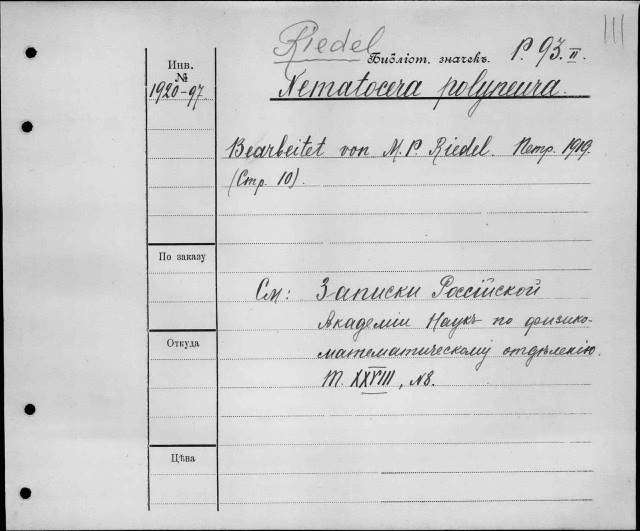 III
Riedel
Библіот. значекъ. P. 93. II.
Инв.
№
1920-97.
Nematocera polyneura.
Bearbeitet von M. P. Riedel. Петр. 1919.
(Стр. 10).
По заказу
См: Записки Россійской
Академіи Наукъ по физико-
математическому отдѣленію.
Откуда
Т. XXVIII, №8.
Цѣна